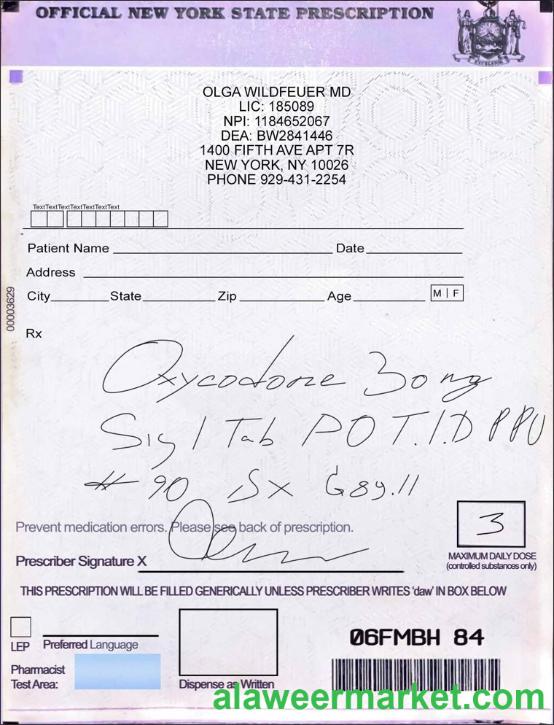 OFFICIAL NEW YORK STATE PRESCRIPTION
OLGA WILDFEUER MD
LIC: 185089
NPI: 1184652067
DEA: BW2841446
1400 FIFTH AVE APT 7R
NEW YORK, NY 10026
PHONE 929-431-2254
TextTextTextTextTextText
Patient Name Date
Address
City State Zip Age M F
00003629
Rx
Oxycodone 30 mg
Sig 1 Tab PO T.I.D
# 90 DX G89.11
Prevent medication errors. Please see back of prescription.
3
Prescriber Signature X
MAXIMUM DAILY DOSE
(controlled substances only)
THIS PRESCRIPTION WILL BE FILLED GENERICALLY UNLESS PRESCRIBER WRITES 'daw' IN BOX BELOW
LEP Preferred Language
06FMBH 84
Pharmacist
Test Area:
Dispense as Written
alaweermarket.com